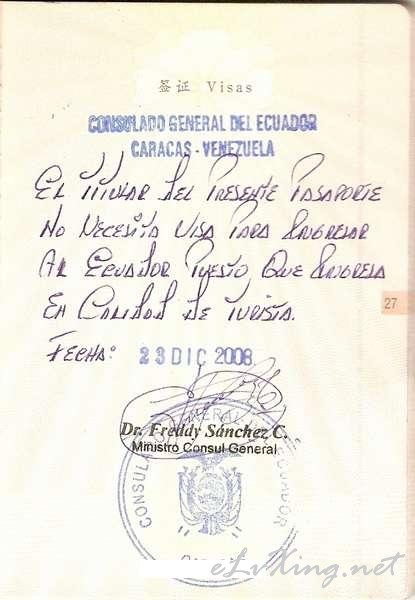 签证 Visas
CONSULADO GENERAL DEL ECUADOR
CARACAS - VENEZUELA
EL TITULAR DEL PRESENTE PASAPORTE
NO NECESITA VISA PARA INGRESAR
AL ECUADOR PUESTO QUE INGRESA
EN CALIDAD DE TURISTA.
27
FECHA: 23 DIC 2008
Dr. Freddy Sánchez C.
Ministro Consul General
CONSULADO GENERAL ECUADOR
eLvXing.net